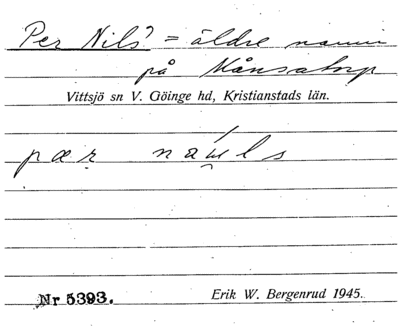 Per Nils' = äldre namn
på Månsatorp
Vittsjö sn V. Göinge hd, Kristianstads län.
pær
Nr 5393. Erik W. Bergenrud 1945.